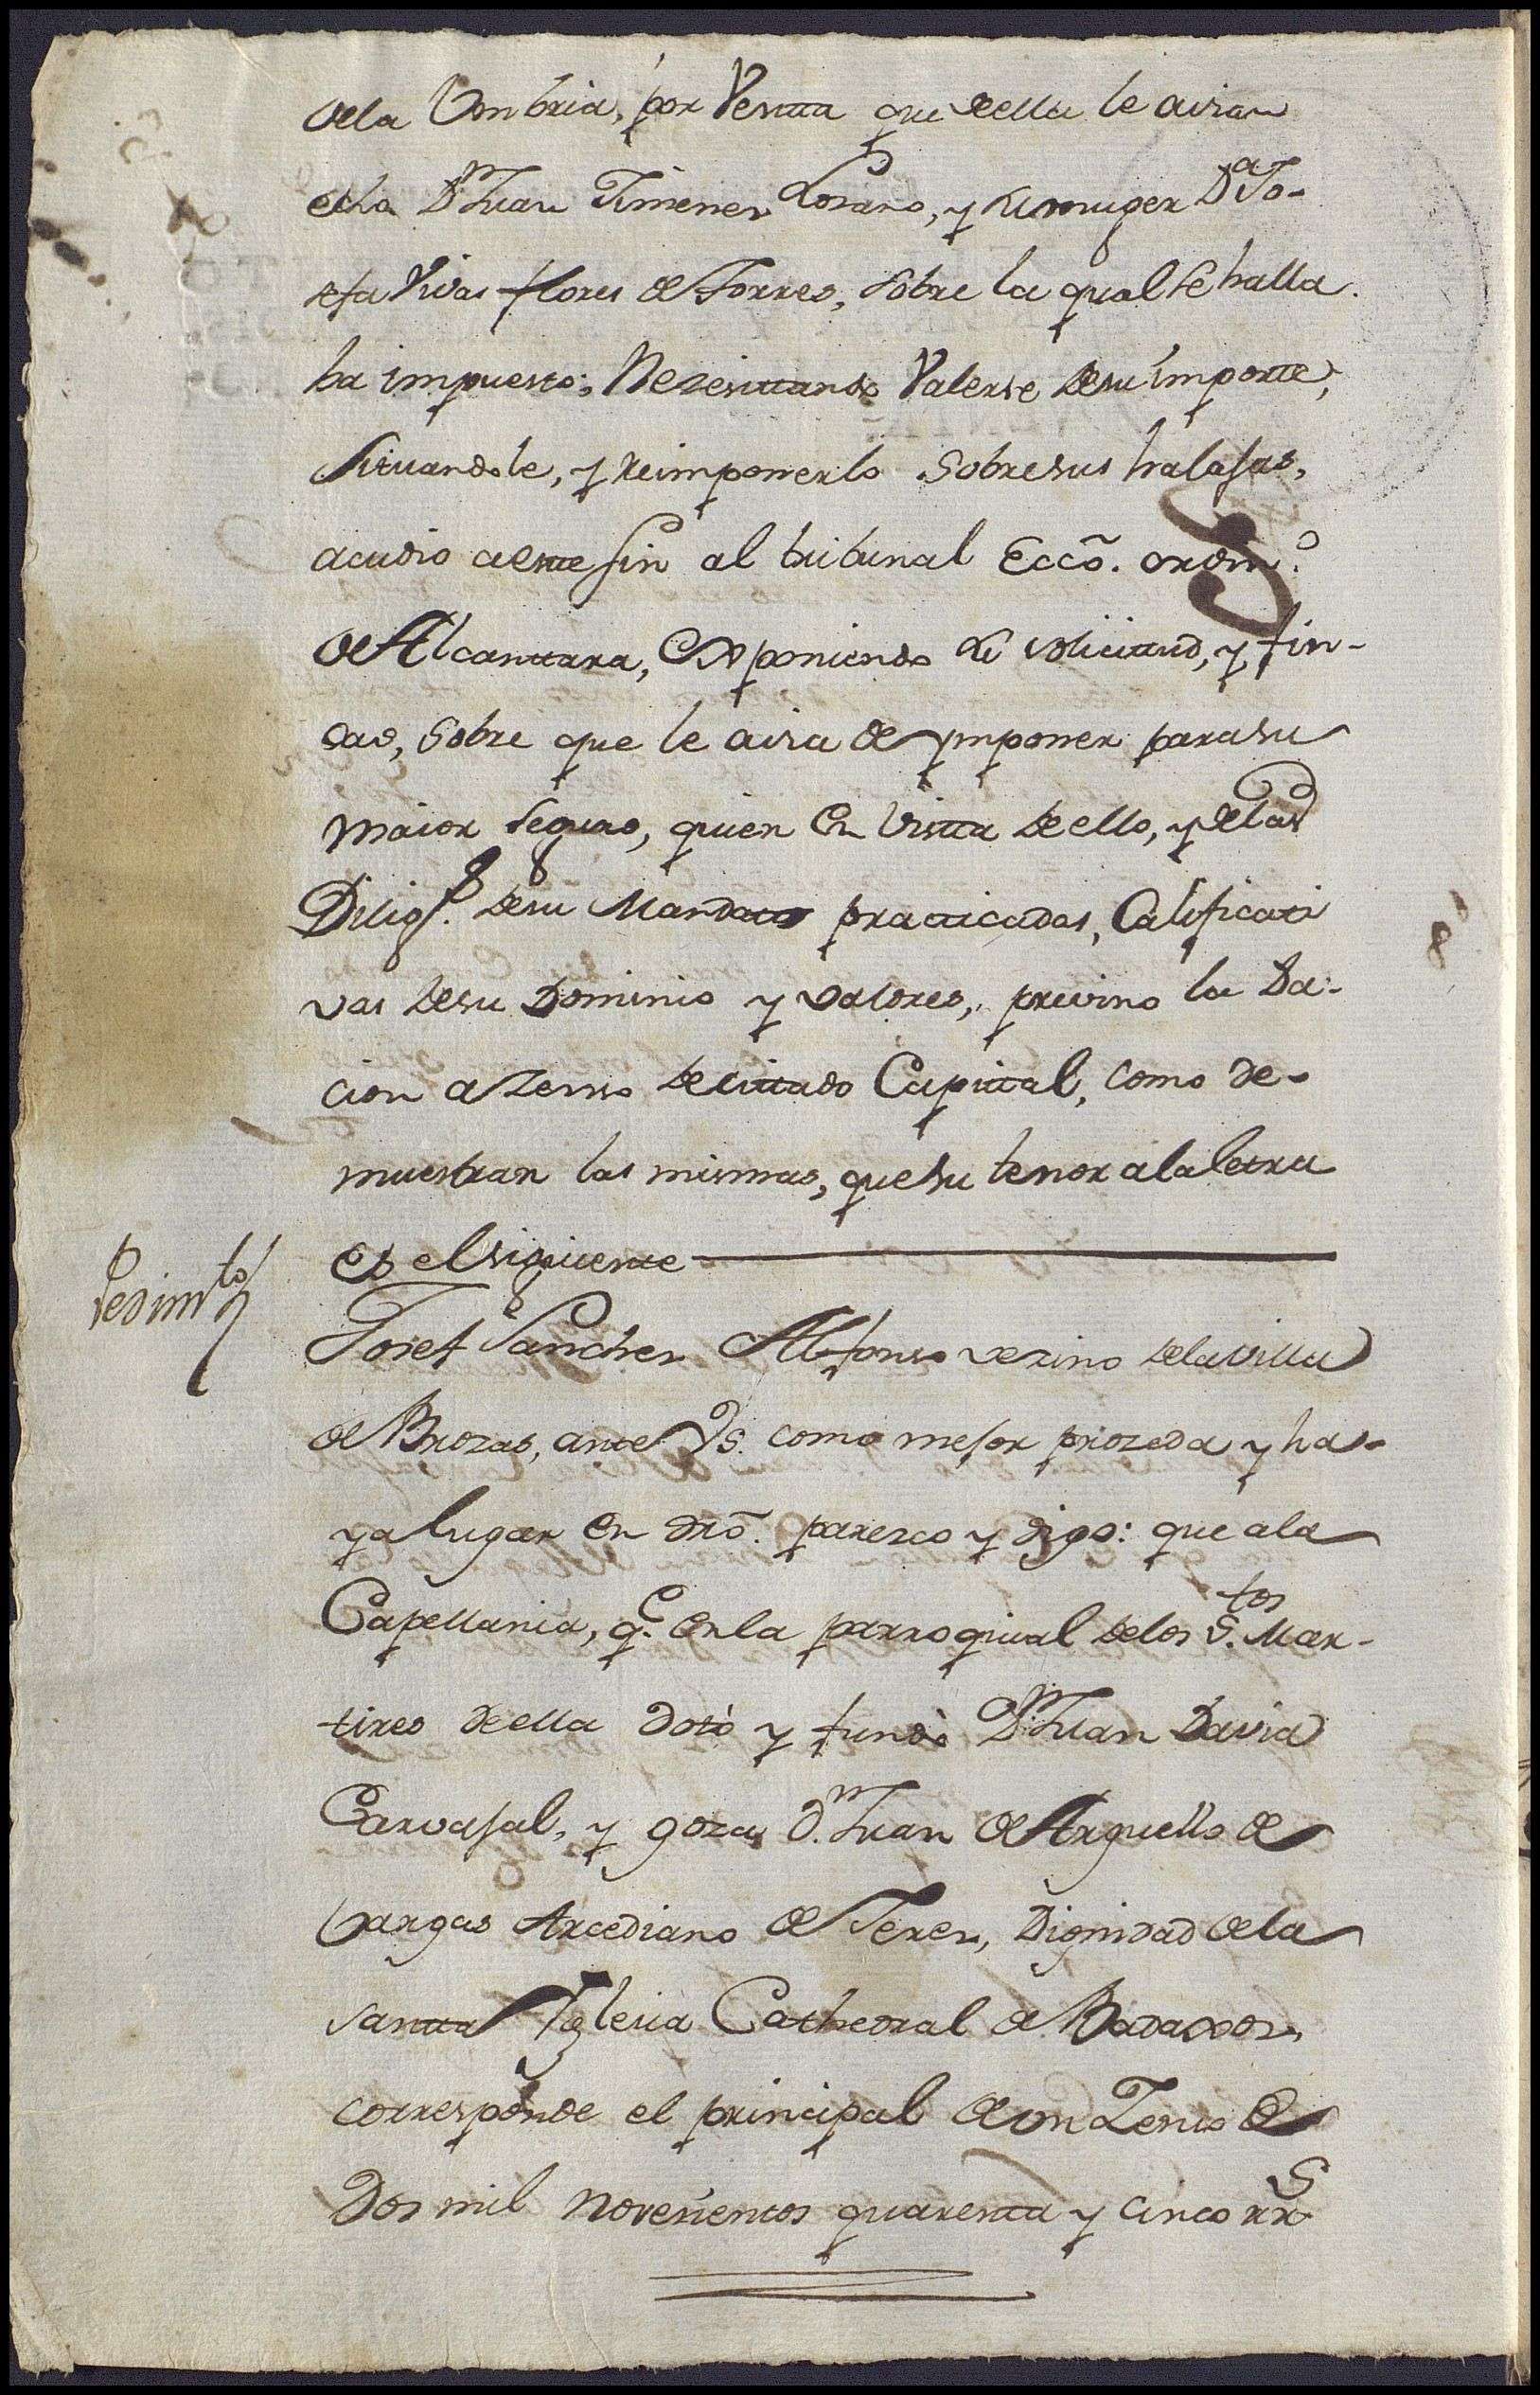 dela Vmbria, por Ventta que deella le avian
echo D.n Juan Jimenez Lozano, y su muger D.a Jo-
sefa Vivas flores de Torres, sobre la qual se halla-
ba impuesto; Nezesittando Valerse desu importte,
Situandole, y reimponerlo sobresus halajas,
acudio aestte fin al tribunal Eccõ. ordin.o
de Alcanttara, Exponiendo su solicittud, y fin-
cas, sobre que le avia de ymponer parasu
maior seguro, quien en Vistta deello, y delas
Dilig.s desu Mandatto practticadas, Calificatti
vas desu Dominio y valores, previno la Da-
cion a Zenso decittado Capittal, como de-
muestran las mismas, quesu tenor alaletra
es elsiguientte
Pedim.to
Josef Sanchez Alfonso vezino delavilla
de Brozas, antte V.S. como mejor prozeda y ha-
ya lugar en drõ. parezco y digo: que ala
Capellania, q.e enla parroquial delos S.tos Mar-
tires deella dotò y fundò D.n Juan Davia
Carvajal, y goza D.n Juan de Arguello de
Vargas Arcediano de Jerez, Dignidad dela
santta Yglesia Cathedral de Badaxoz,
corresponde el principal de un Zenso de
Dos mil novezientos quarentta y cinco rr.s